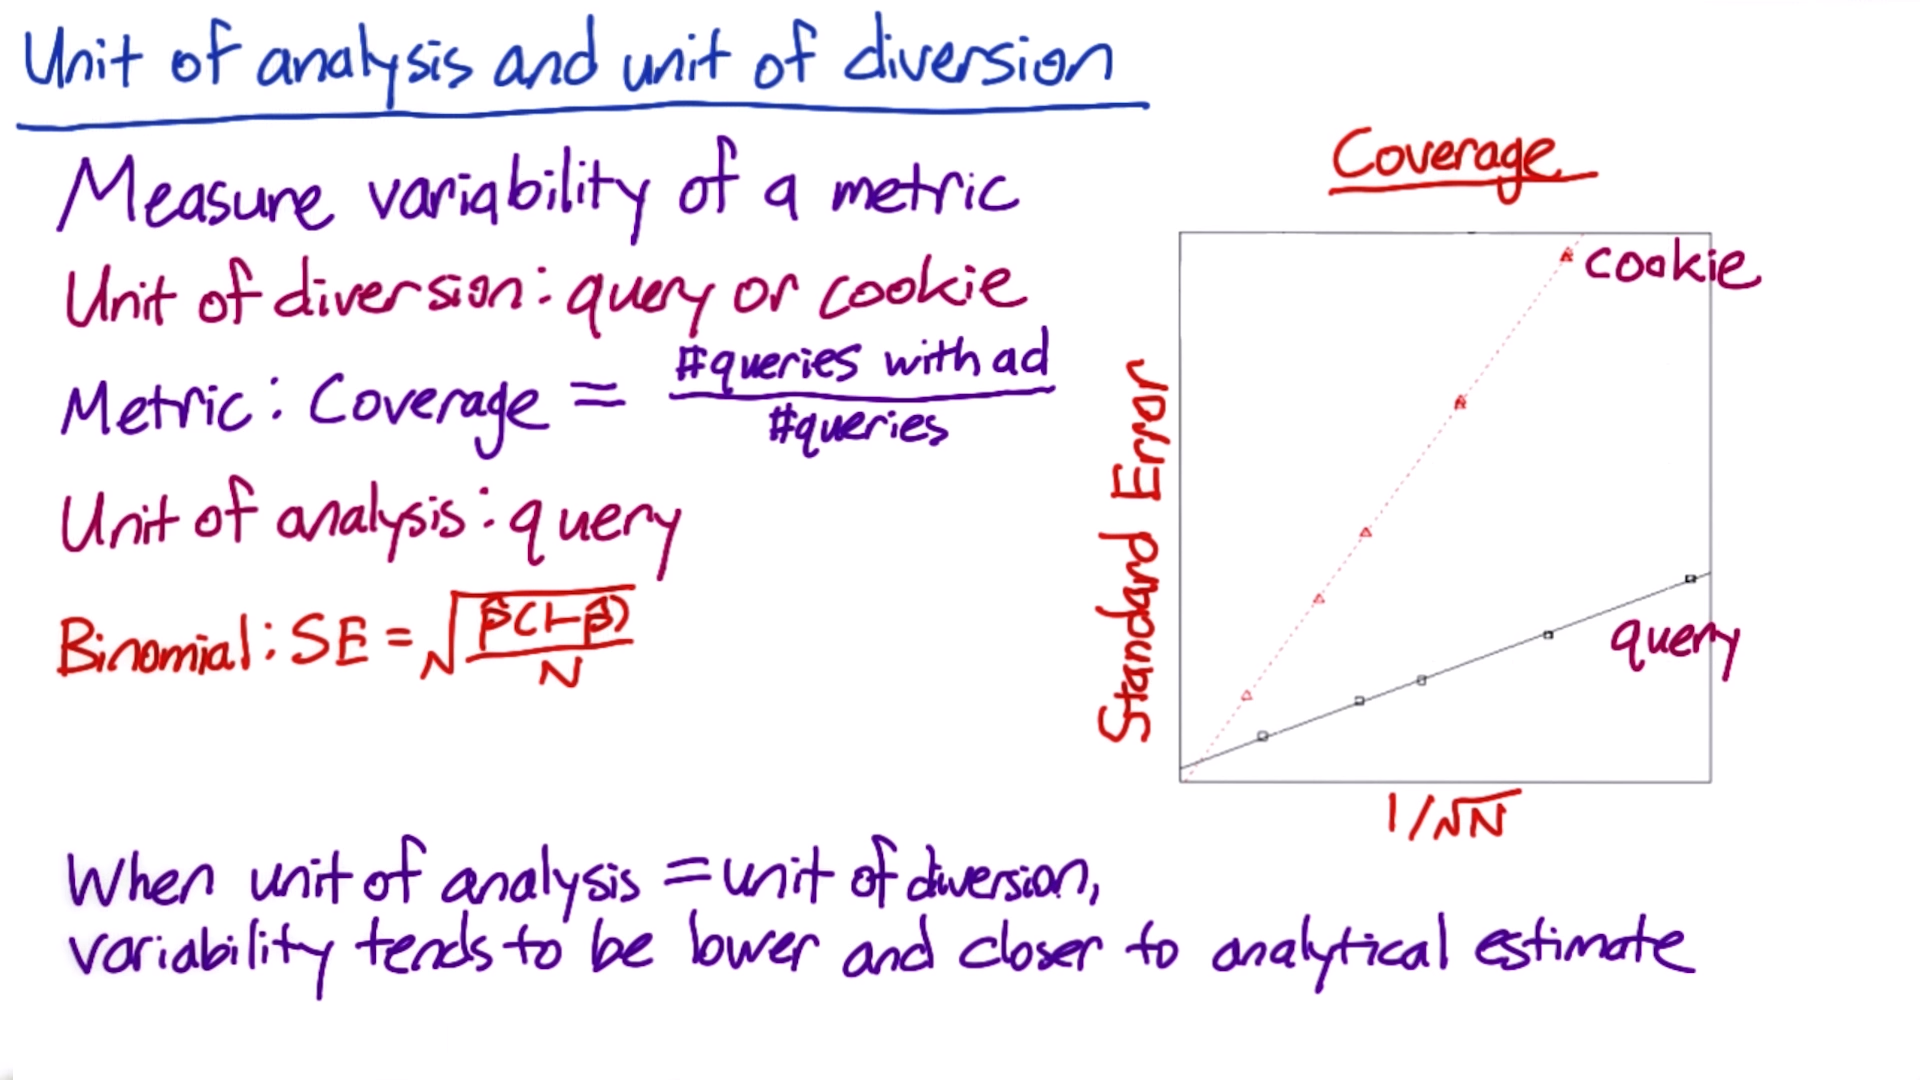 Unit of analysis and unit of diversion
Measure variability of a metric
Unit of diversion: query or cookie
Metric: Coverage = #queries with ad / #queries
Unit of analysis: query
Binomial: SE = √(p̂(1-p̂)/N)
Coverage
cookie
Standard Error
query
1/√N
When unit of analysis = unit of diversion,
variability tends to be lower and closer to analytical estimate